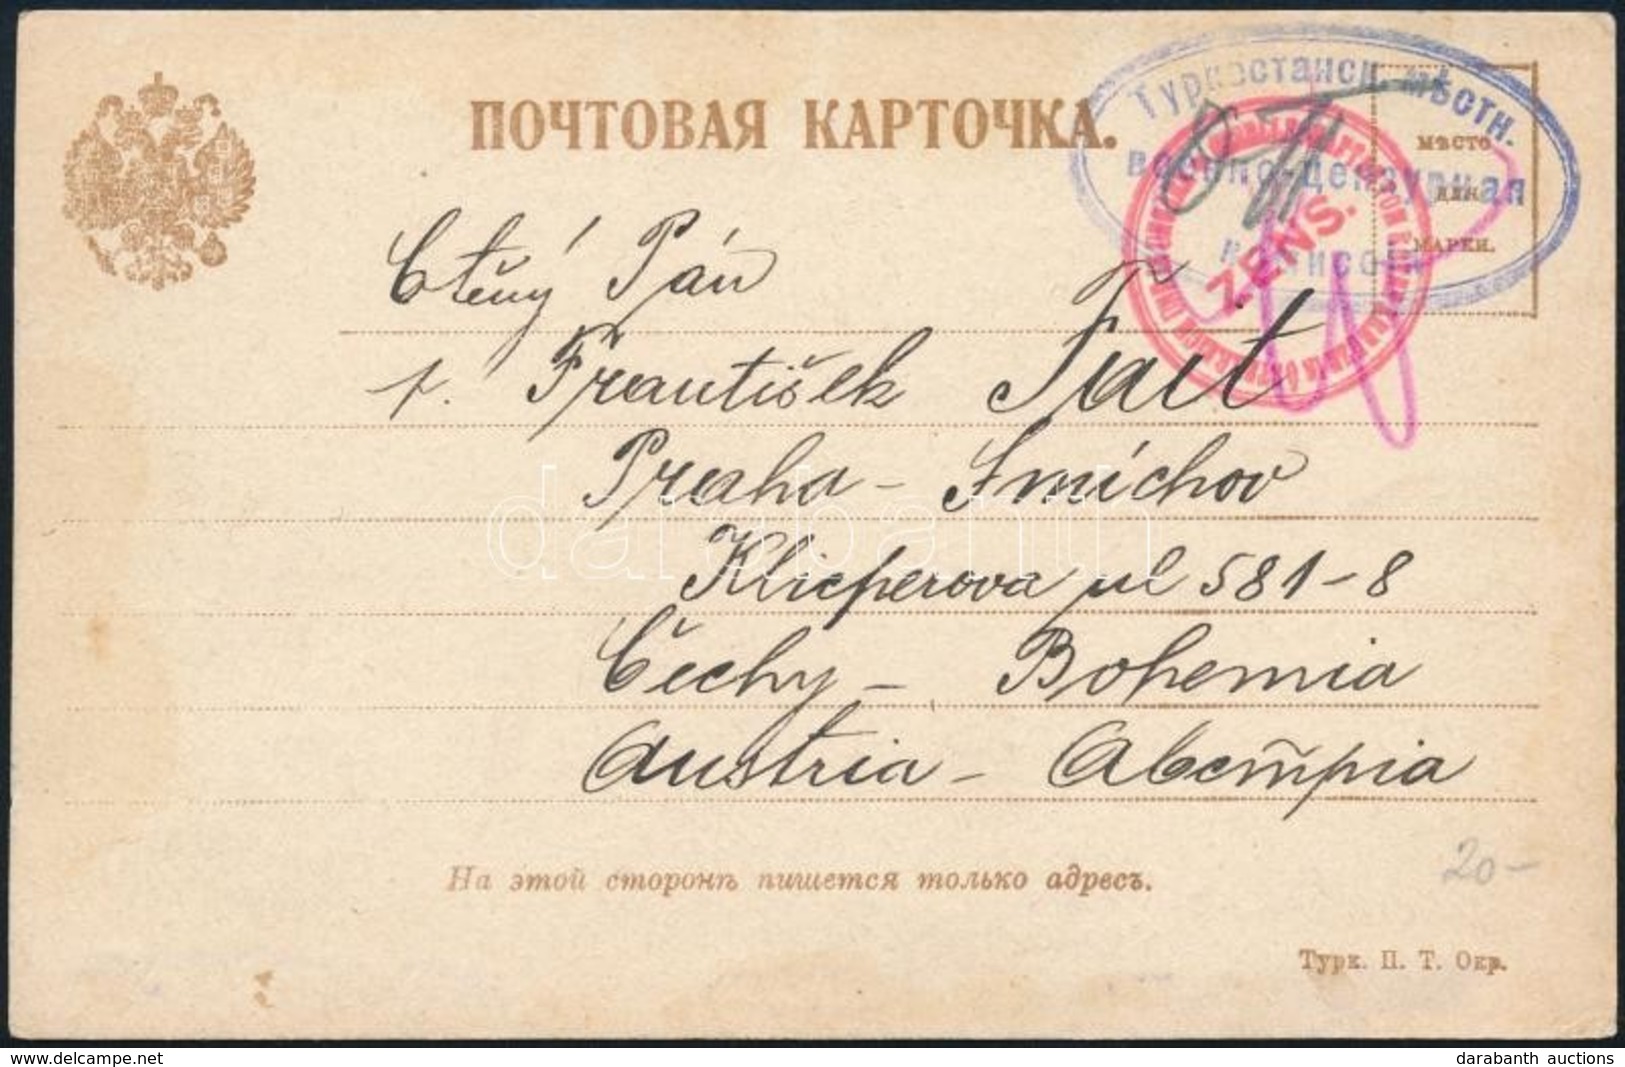 ПОЧТОВАЯ КАРТОЧКА.
Туркестанск. мѣстн.
военно-цензурная
комисія
мѣсто
для
марки.
ZENS.
Ctěný Pán
p. František Fait
Praha - Smíchov
Klicperova ul 581-8
Čechy - Bohemia
Austria - Австрія
На этой сторонѣ пишется только адресъ.
20-
Турк. П. Т. Окр.
darabanth
delcampe.net
darabanth auctions